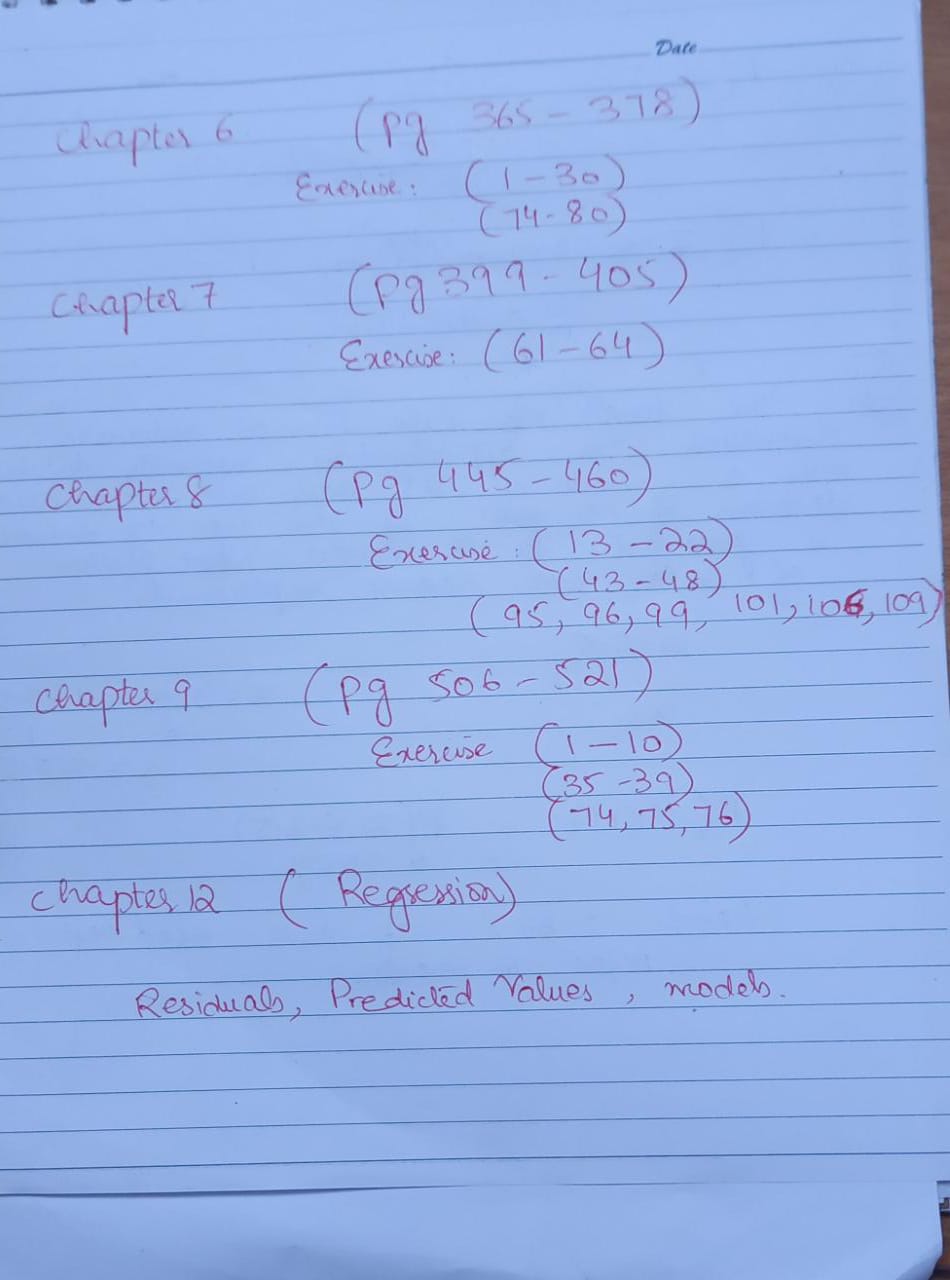 Date
Chapter 6 (pg 365 - 378)
Exercise: (1 - 30)
(74 - 80)
Chapter 7 (Pg 399 - 405)
Exercise: (61 - 64)
Chapter 8 (Pg 445 - 460)
Exercise: (13 - 22)
(43 - 48)
(95, 96, 99, 101, 106, 109)
Chapter 9 (pg 506 - 521)
Exercise (1 - 10)
(35 - 39)
(74, 75, 76)
Chapter 12 (Regression)
Residuals, Predicted Values, models.